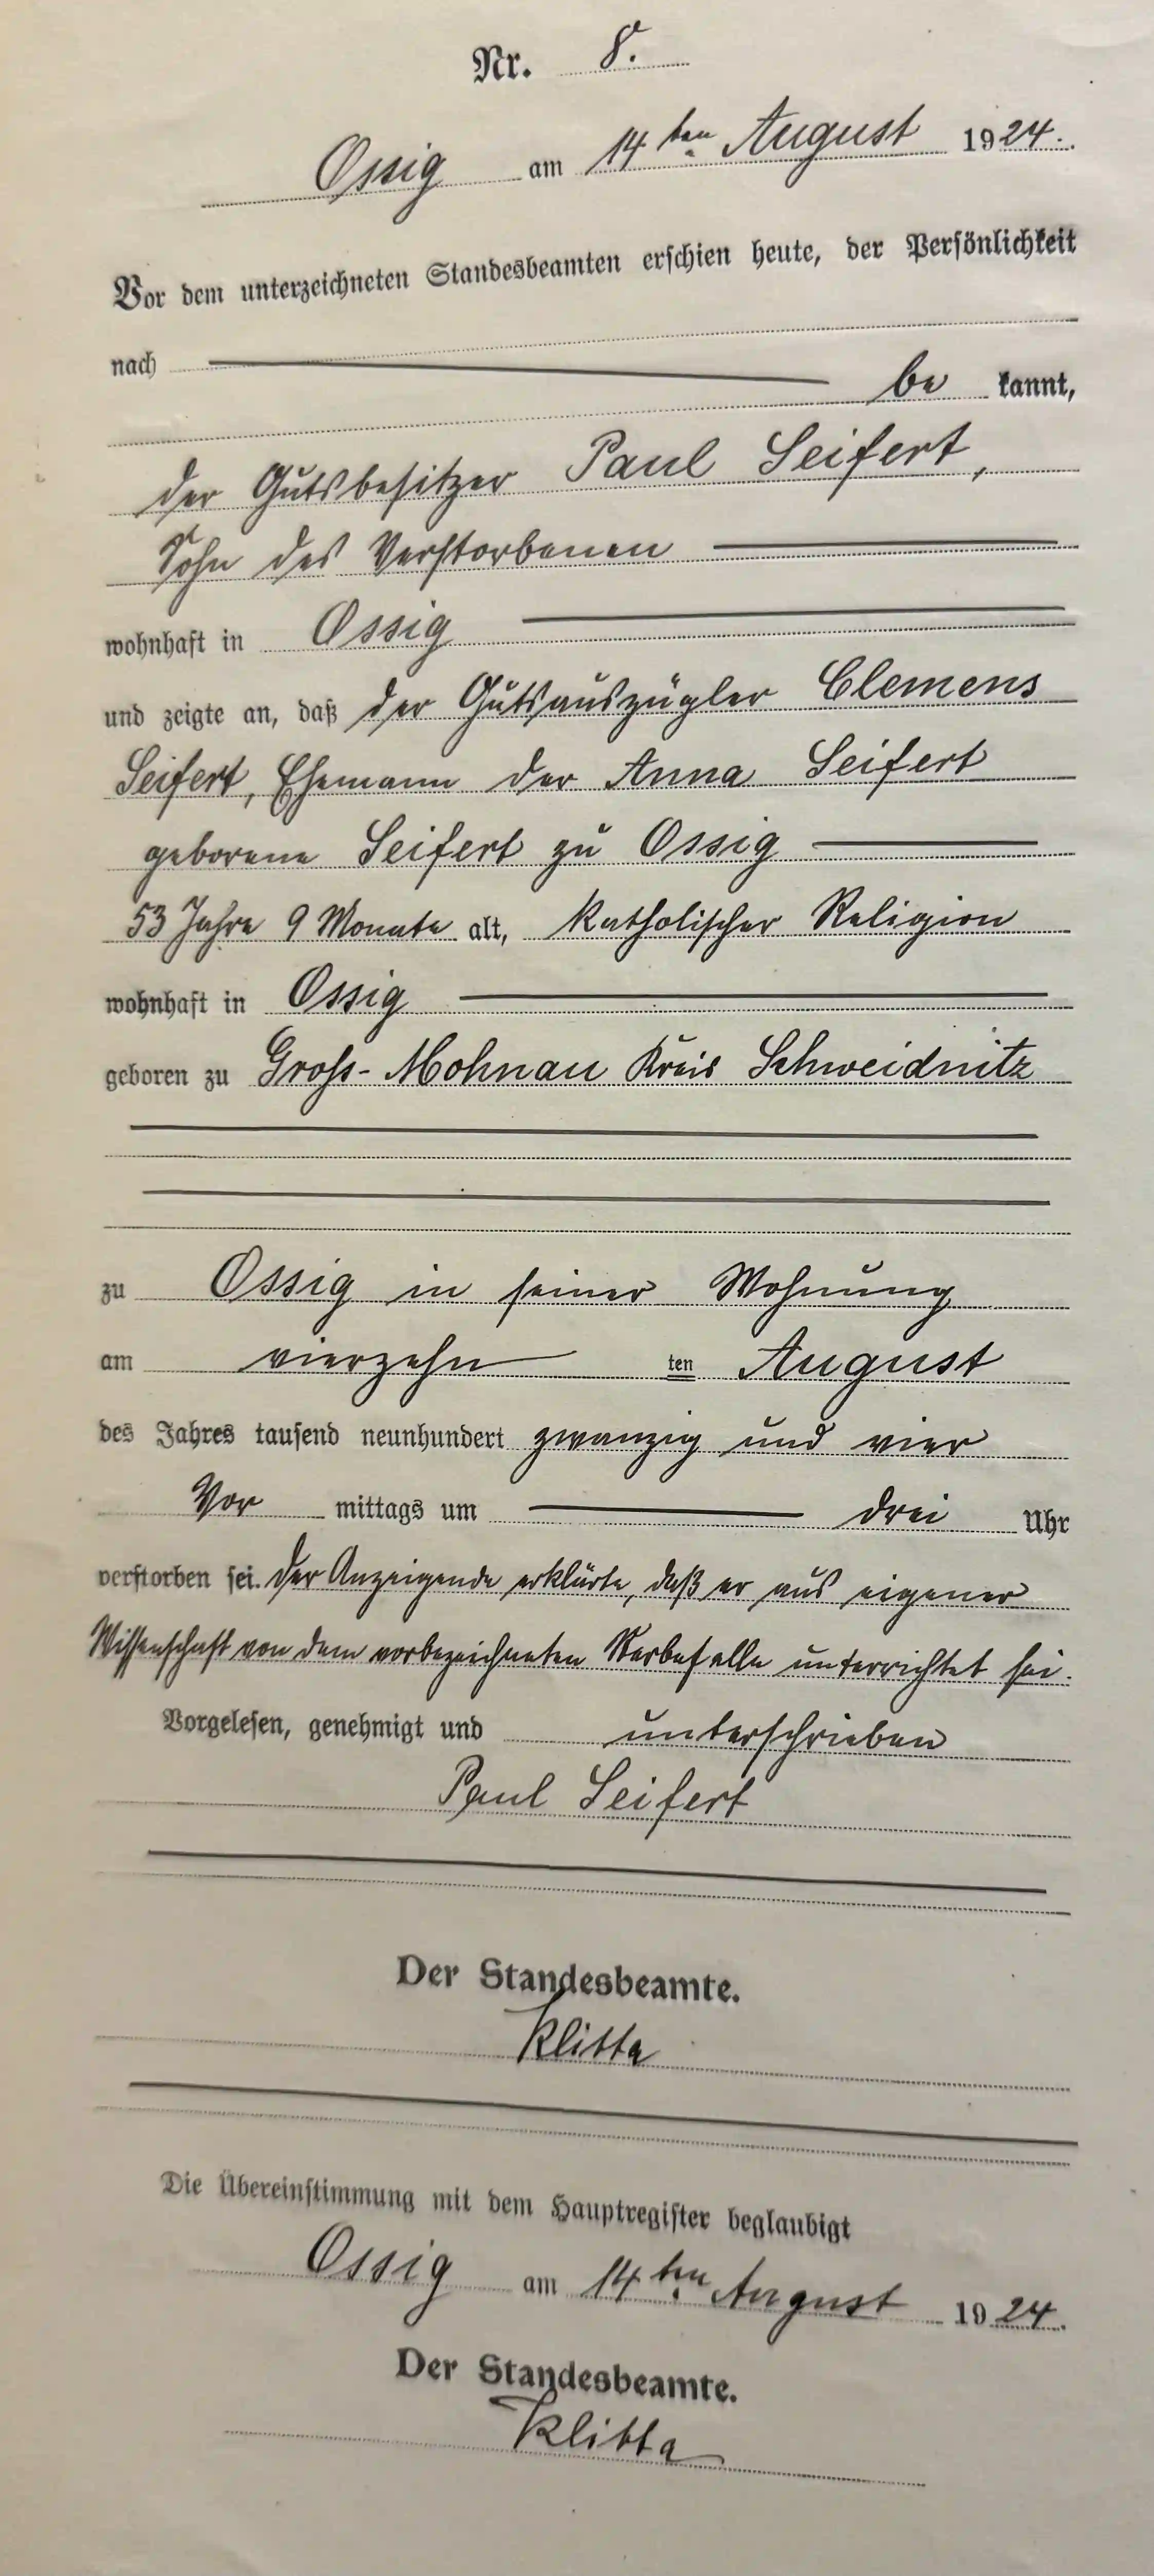 Nr. 8.
Ossig am 14ten August 1924.
Vor dem unterzeichneten Standesbeamten erschien heute, der Persönlichkeit
nach
be kannt,
der Gutsbesitzer Paul Seifert,
Sohn des Verstorbenen
wohnhaft in Ossig
und zeigte an, daß der Gutsauszügler Clemens
Seifert, Ehemann der Anna Seifert
geborene Seifert zu Ossig
53 Jahre 9 Monate alt, katholischer Religion
wohnhaft in Ossig
geboren zu Gross-Mohnau Kreis Schweidnitz
zu Ossig in seiner Wohnung
am vierzehn ten August
des Jahres tausend neunhundert zwanzig und vier
Vor mittags um drei Uhr
verstorben sei. Der Anzeigende erklärte, daß er aus eigener
Wissenschaft von dem vorbezeichneten Sterbefalle unterrichtet sei.
Vorgelesen, genehmigt und unterschrieben
Paul Seifert
Der Standesbeamte.
Klitta
Die Übereinstimmung mit dem Hauptregister beglaubigt
Ossig am 14ten August 1924.
Der Standesbeamte.
Klitta